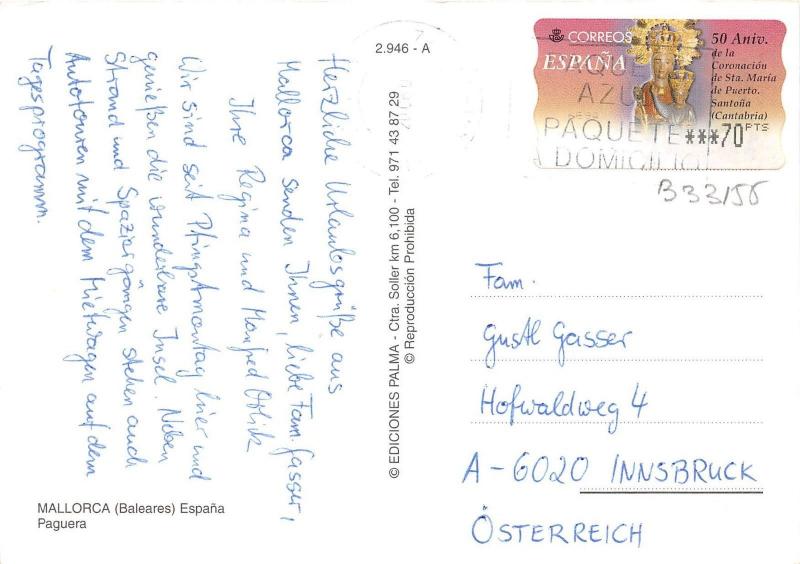 Herzliche Urlaubsgrüße aus
Mallorca senden Ihnen, liebe Fam. Gasser,
Ihre Regina und Manfred
Wir sind seit Pfingstmontag hier und
genießen die wunderbare Insel. Neben
Strand und Spaziergängen stehen auch
Autotouren mit dem Mietwagen auf dem
Tagesprogramm.
MALLORCA (Baleares) España
Paguera
2.946 - A
© EDICIONES PALMA - Ctra. Soller km 6,100 - Tel. 971 43 87 29
© Reproducción Prohibida
CORREOS
ESPAÑA
50 Aniv.
de la
Coronación
de Sta. María
de Puerto.
Santoña
(Cantabria)
***70 PTS
PAQUETE
DOMICILIO
B33/55
Fam.
Gustl Gasser
Hofwaldweg 4
A-6020 INNSBRUCK
ÖSTERREICH